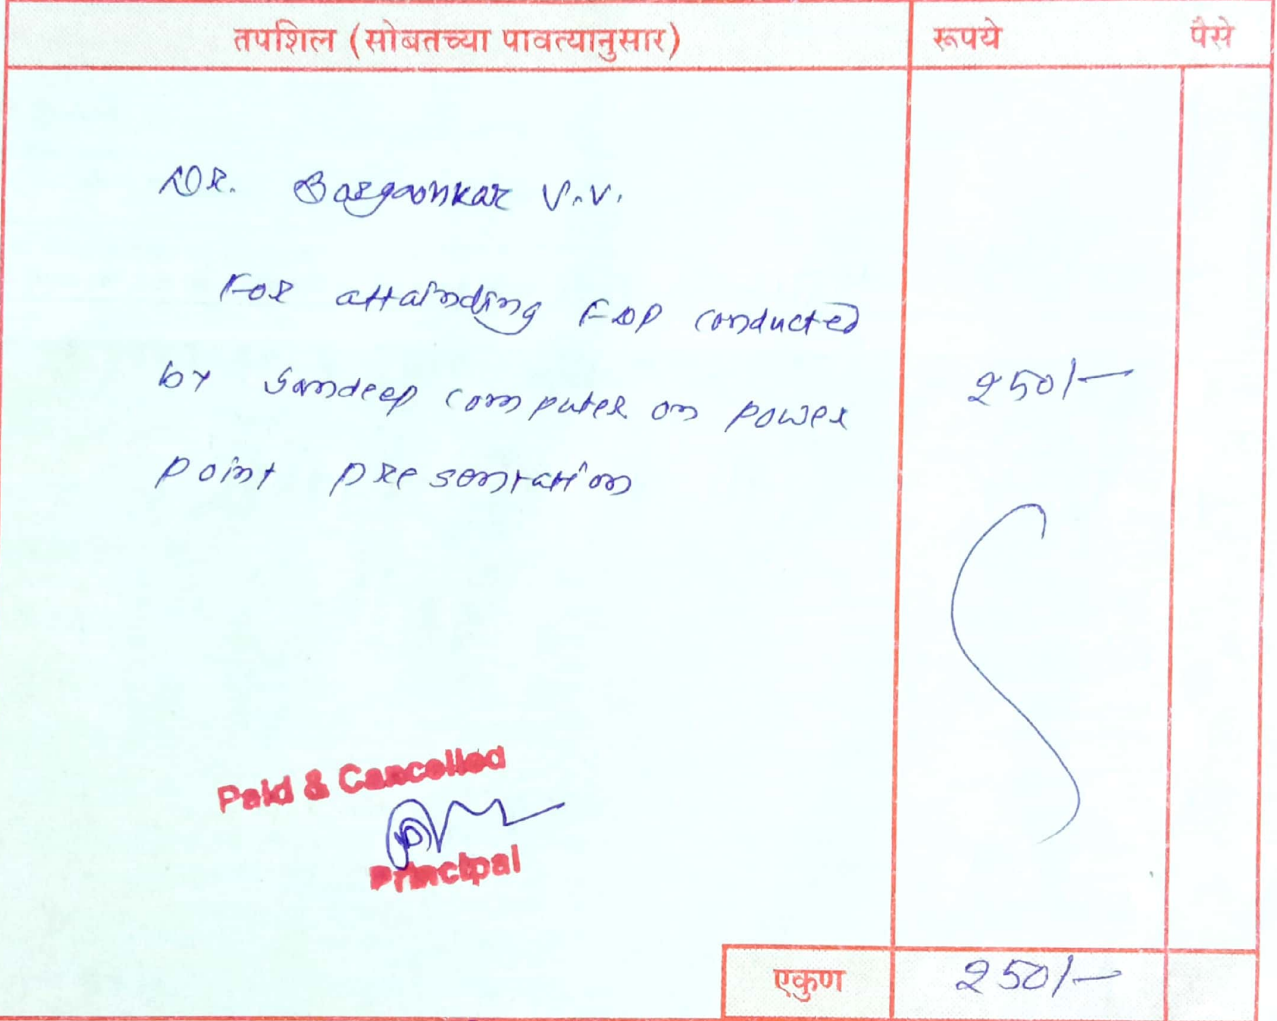 तपशिल (सोबतच्या पावत्यानुसार) रूपये पैसे
DR. Bargaonkar V.V.
For attainding FDP conducted
by Sandeep computer on power 250/-
point presentation
Paid & Cancelled
Principal
एकुण 250/-